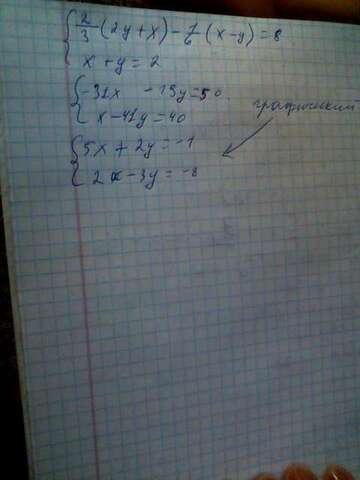 2/3 (2y+x) - 7/6 (x-y) = 8
x + y = 2
-31x - 19y = 50
x - 41y = 40
графический
5x + 2y = -1
2x - 3y = -8